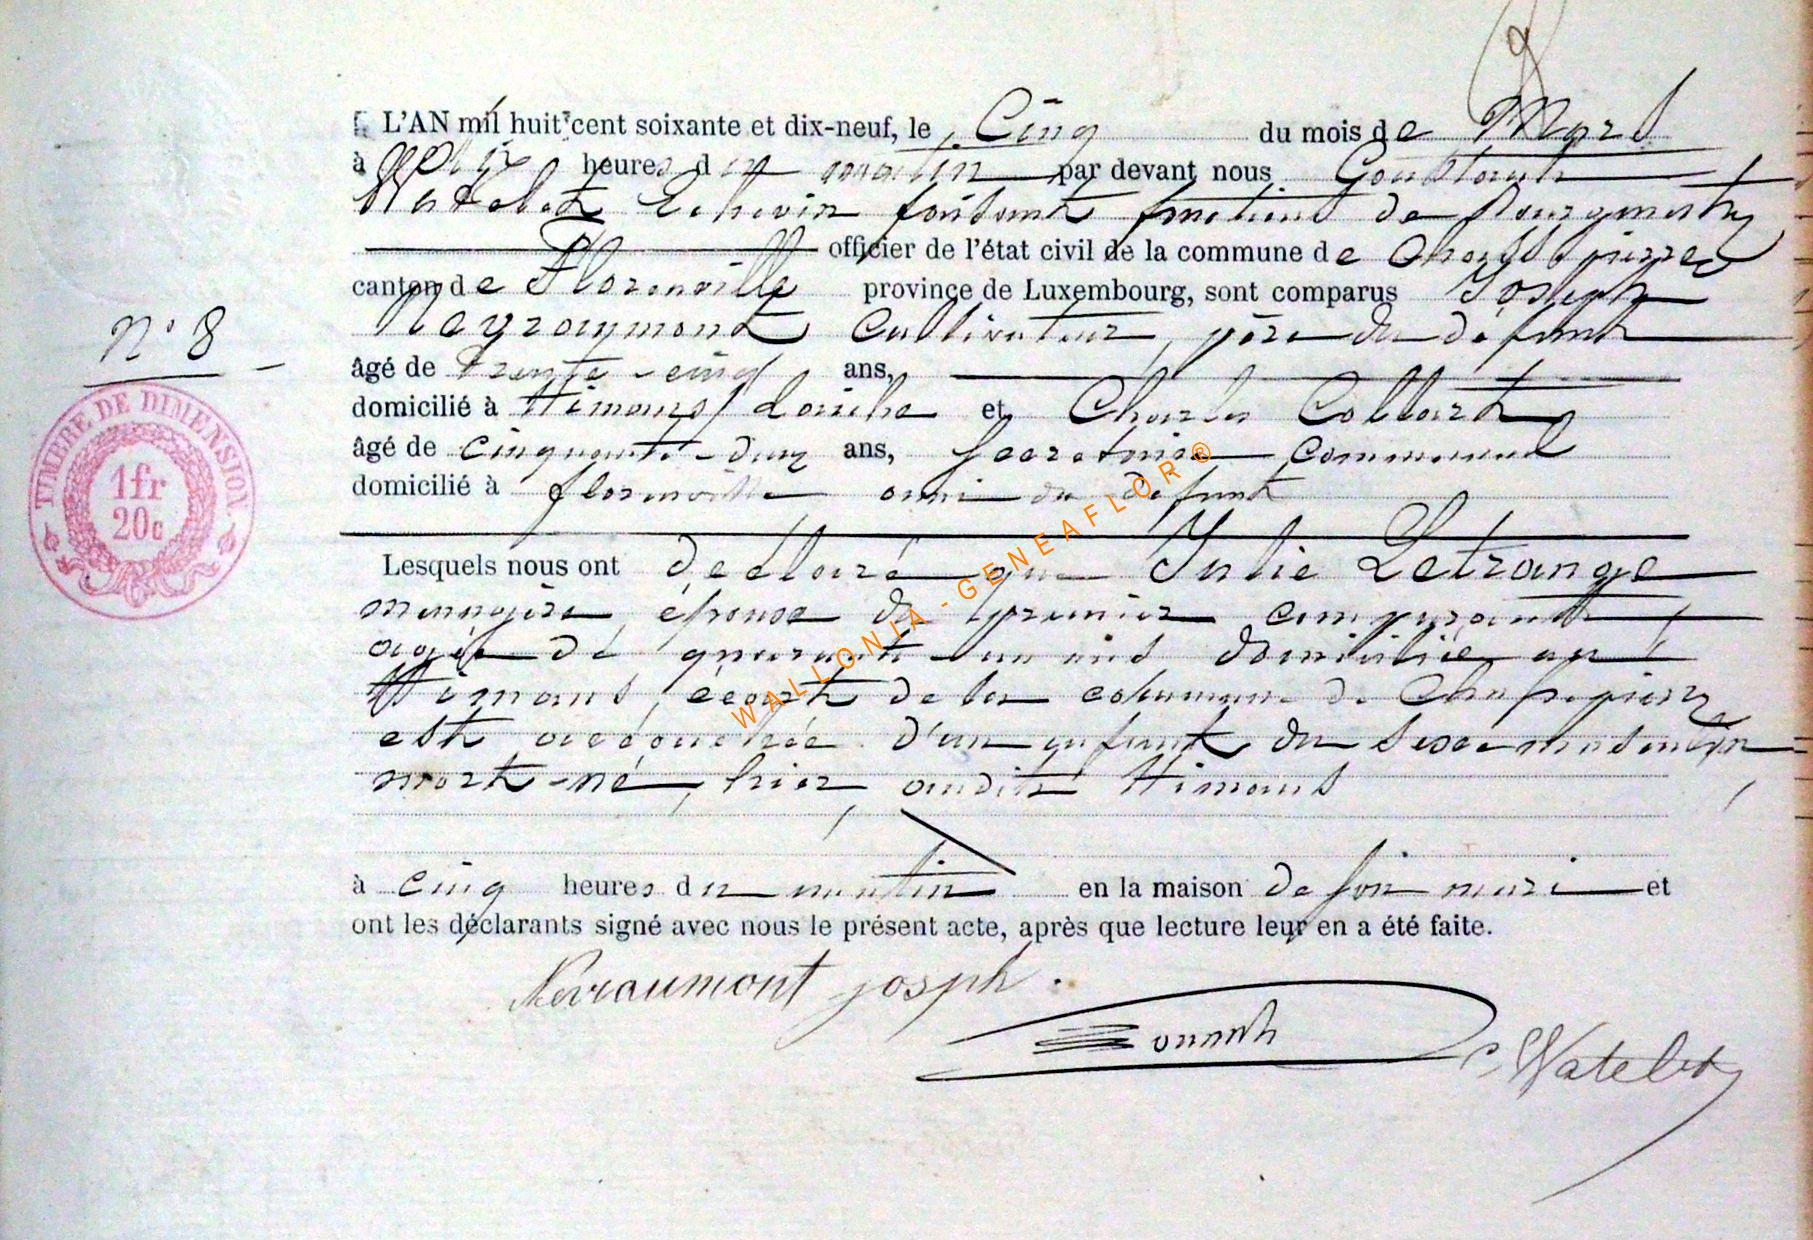 L'AN mil huit cent soixante et dix-neuf, le Cinq du mois de Mars
à Dix heures du matin par devant nous Constant
Watelet Echevin faisant fonctions de Bourgmestre
officier de l'état civil de la commune de Chassepierre
canton de Florenville province de Luxembourg, sont comparus Joseph
Neyraumont Cultivateur, père du défunt
N° 8
âgé de Trente-cinq ans,
domicilié à et Charles Collart
âgé de cinquante-deux ans, Secrétaire communal
domicilié à florenville ami du défunt
TIMBRE DE DIMENSION
1fr
20c
Lesquels nous ont déclaré que Julie Letrange
menagère, épouse du premier comparant
agée de quarante-un ans domiciliée au
écart de la commune de Chassepierre
est accouchée d'un enfant du sexe masculin
mort-né, hier, audit
à cinq heures du matin en la maison de son mari et
ont les déclarants signé avec nous le présent acte, après que lecture leur en a été faite.
Nevraumont josph.
C Watelet
WALLONIA-GENEAFLOR®